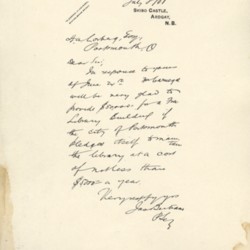 July 8/01
SKIBO CASTLE,
ARDGAY,
N.B.
Esq,
Portsmouth, O
Dear Sir,
In response to yours
of June 20th Mr Carnegie
will be very glad to
provide for a
Library Building if
the city of Portsmouth
pledges itself to main
the library at a cost
of not less than
$5000 a year
Very resp'y yrs
Jas Bertram
P Sec